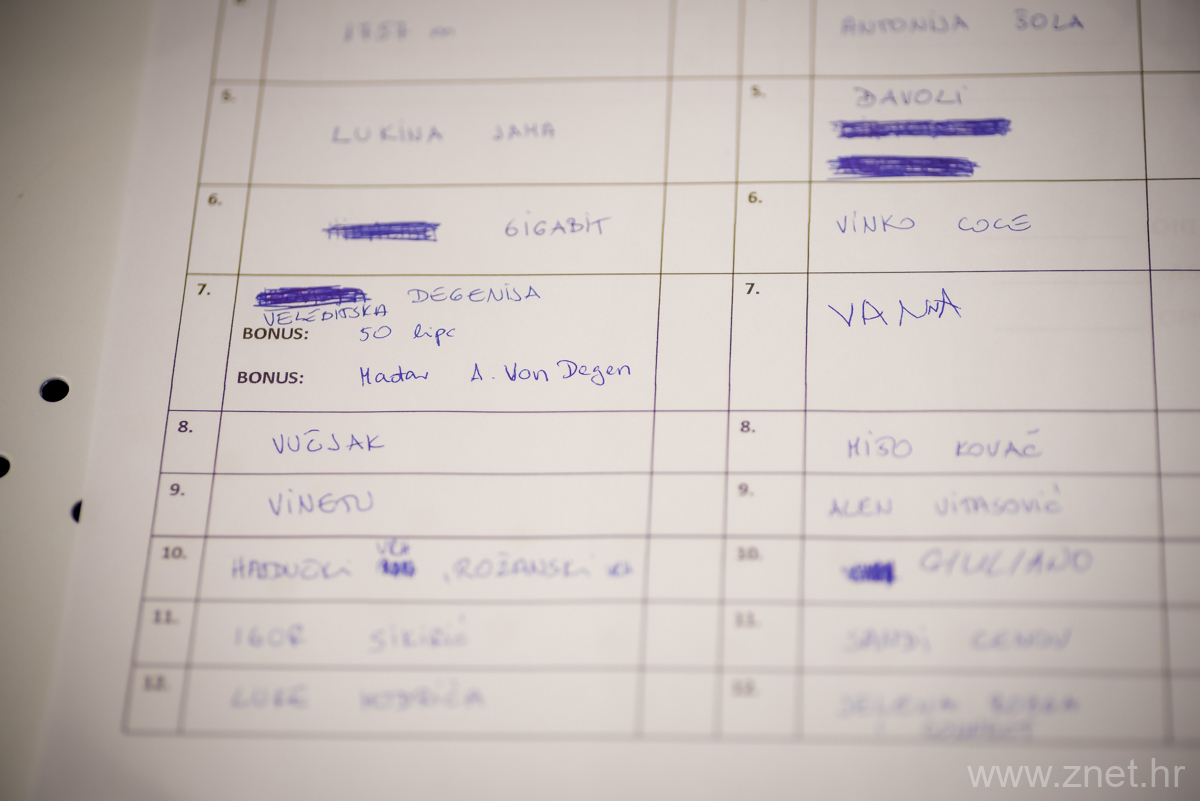 1757 m
ANTONIJA ŠOLA
5.
LUKINA JAMA
5.
ĐAVOLI
6.
GIGABIT
6.
VINKO COCE
7.
DEGENIJA
VELEBITSKA
BONUS: 50 lipa
BONUS: Mađar A. Von Degen
7.
VANNA
8.
VUČJAK
8.
MIŠO KOVAČ
9.
VINETU
9.
ALEN VITASOVIĆ
10.
HAJDUČKI , ROŽANSKI
10.
GIULIANO
11.
IGOR
11.
SANDI CENOV
12.
LUKE
JELENA
www.znet.hr